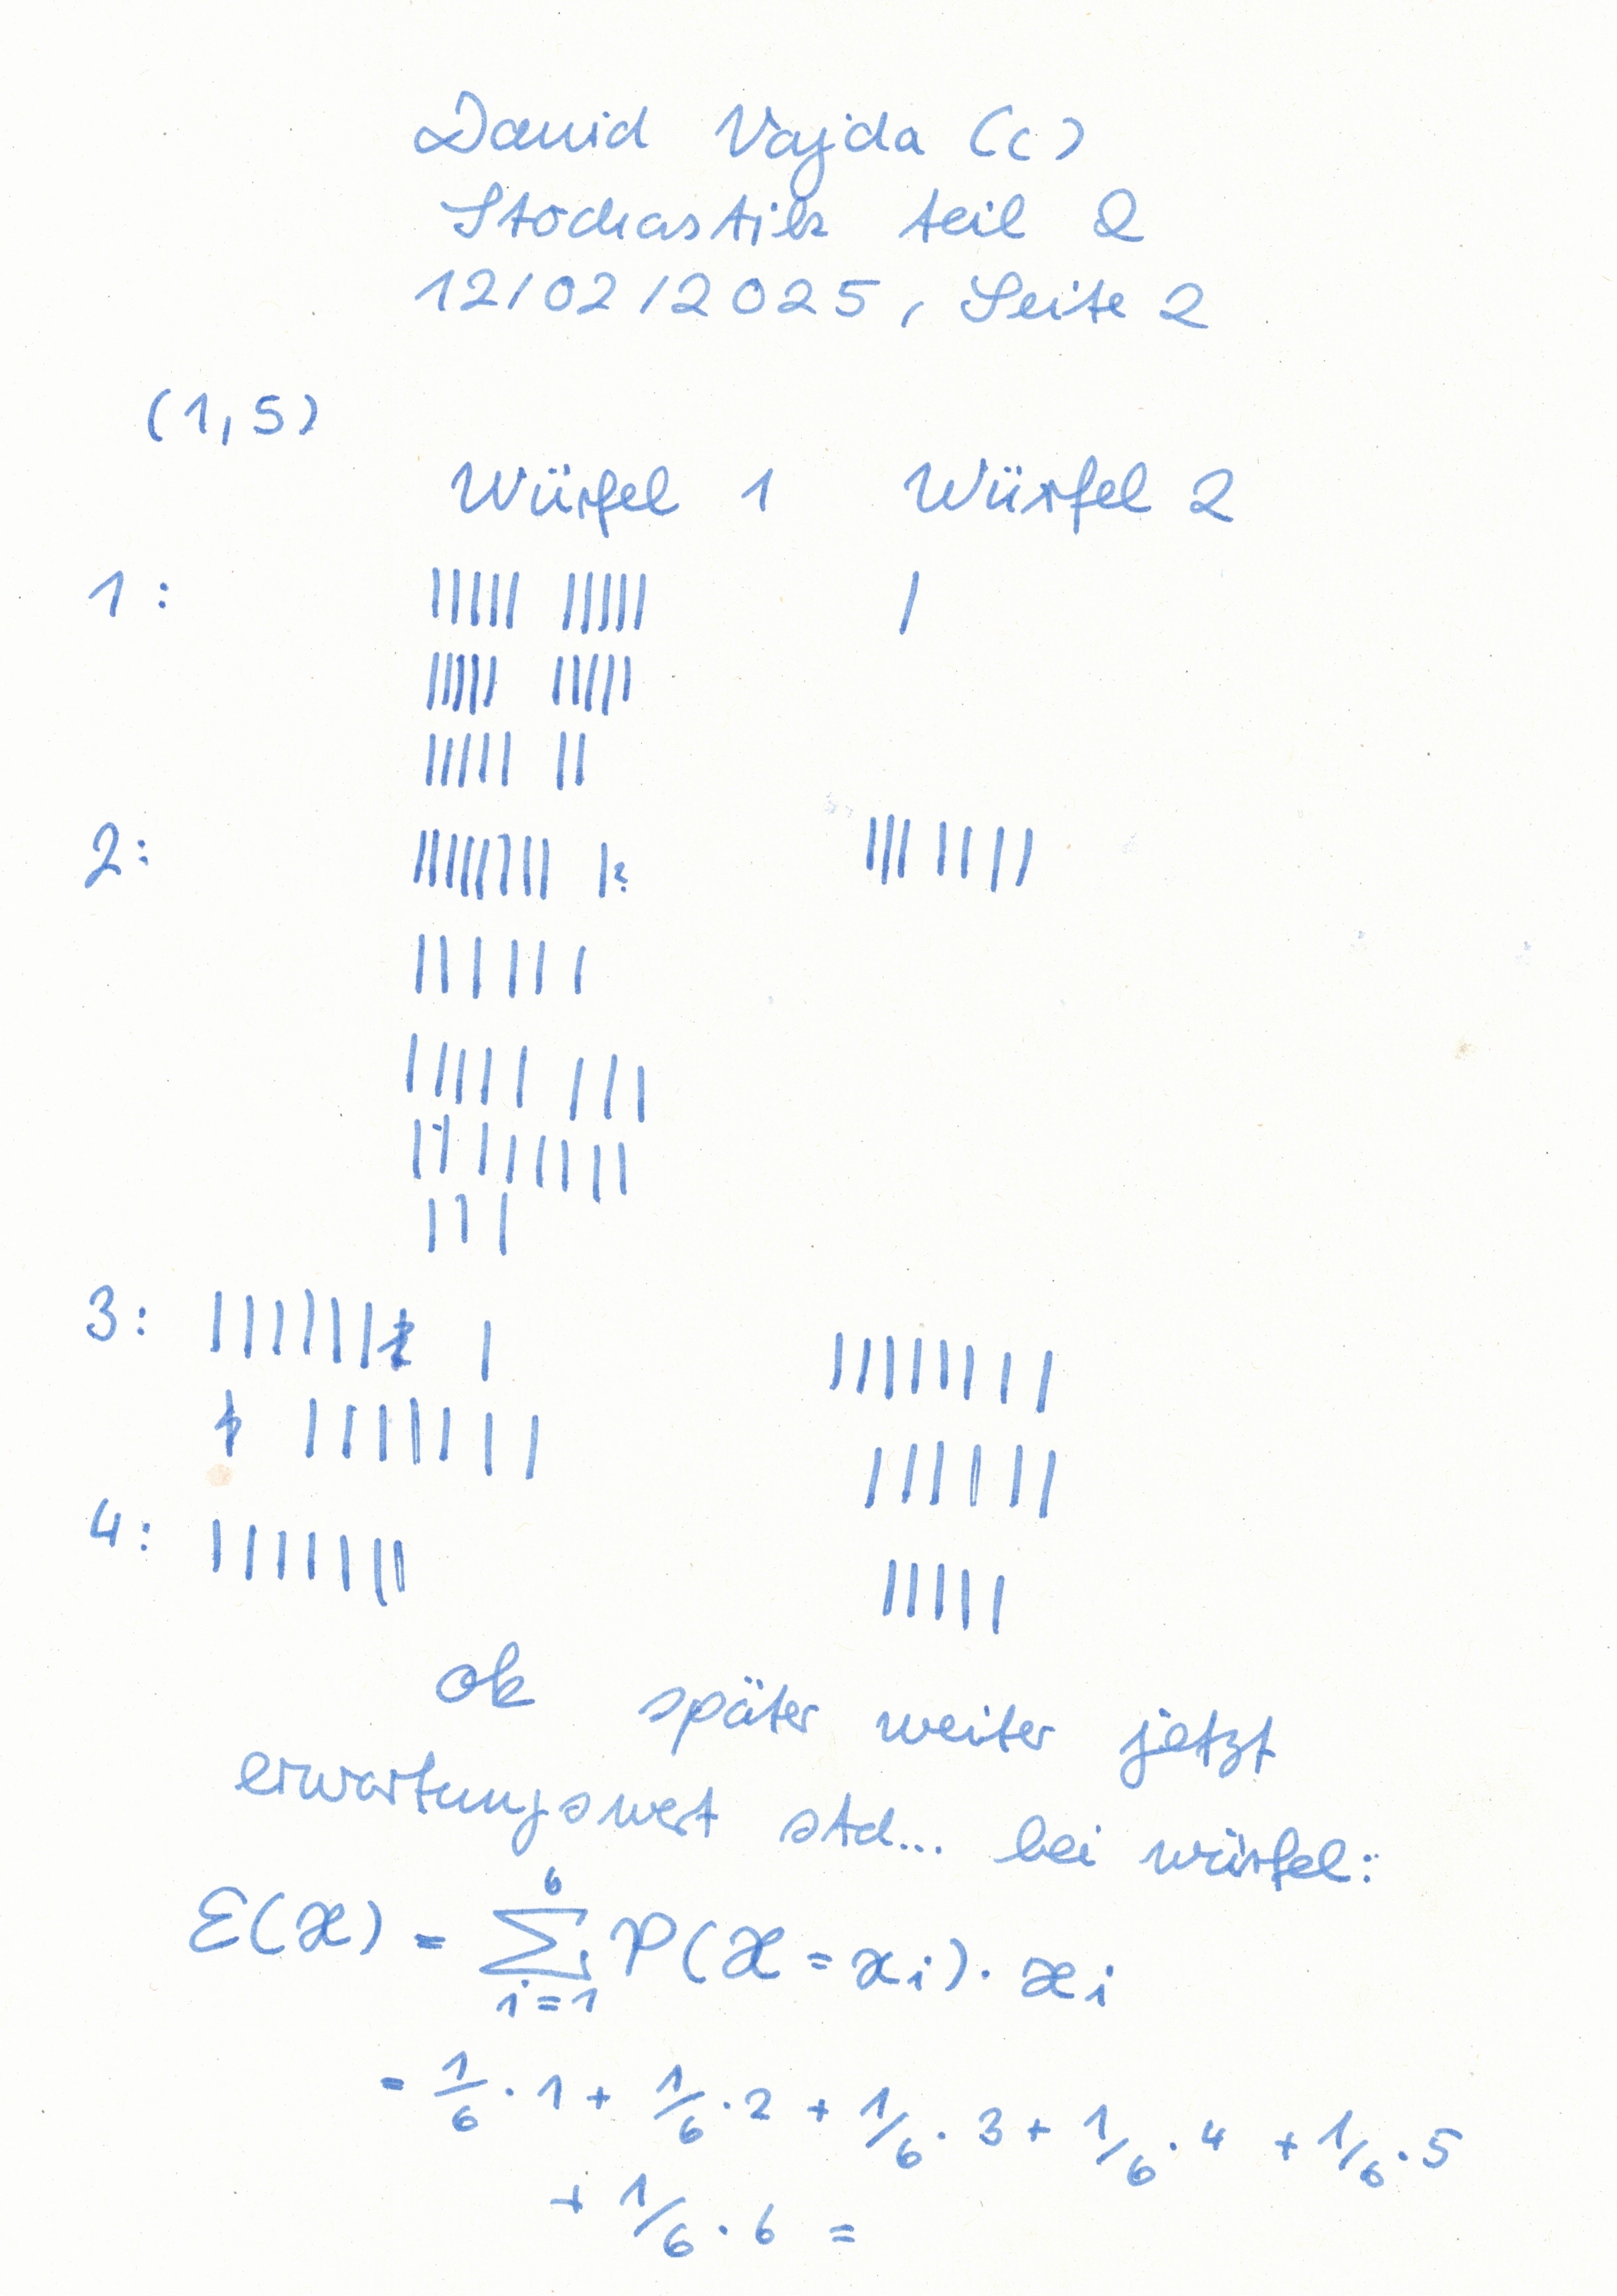 David Vajda (c)
Stochastik teil 2
12/02/2025, Seite 2
(1,5)
Würfel 1 Würfel 2
1: ||||| ||||| |
||||| |||||
||||| ||
2: ||||||||| |: |||||||
||||||
||||| |||
||||||||
|||
3: ||||||| | ||||||||
||||||| ||||||
4: ||||||| |||||
ok später weiter jetzt
erwartungswert std... bei würfel:
E(X) = ∑ᵢ₌₁⁶ P(X = xᵢ) · xᵢ
= 1/6 · 1 + 1/6 · 2 + 1/6 · 3 + 1/6 · 4 + 1/6 · 5
+ 1/6 · 6 =